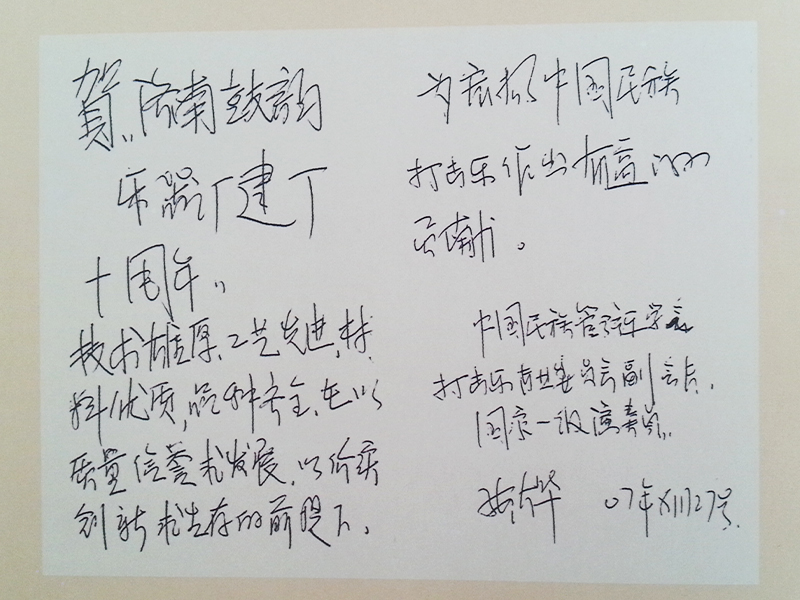 贺:济南鼓韵
乐器厂建厂
十周年:
技术雄厚,工艺先进,材
料优质,品种齐全,在以
质量信誉求发展,以
创新求生存的前提下,
为宏扬中国民族
打击乐作出有益的
贡献。
中国民族管弦乐学会
打击乐专业委员会副会长,
国家一级演奏员:
07年XII月27号.